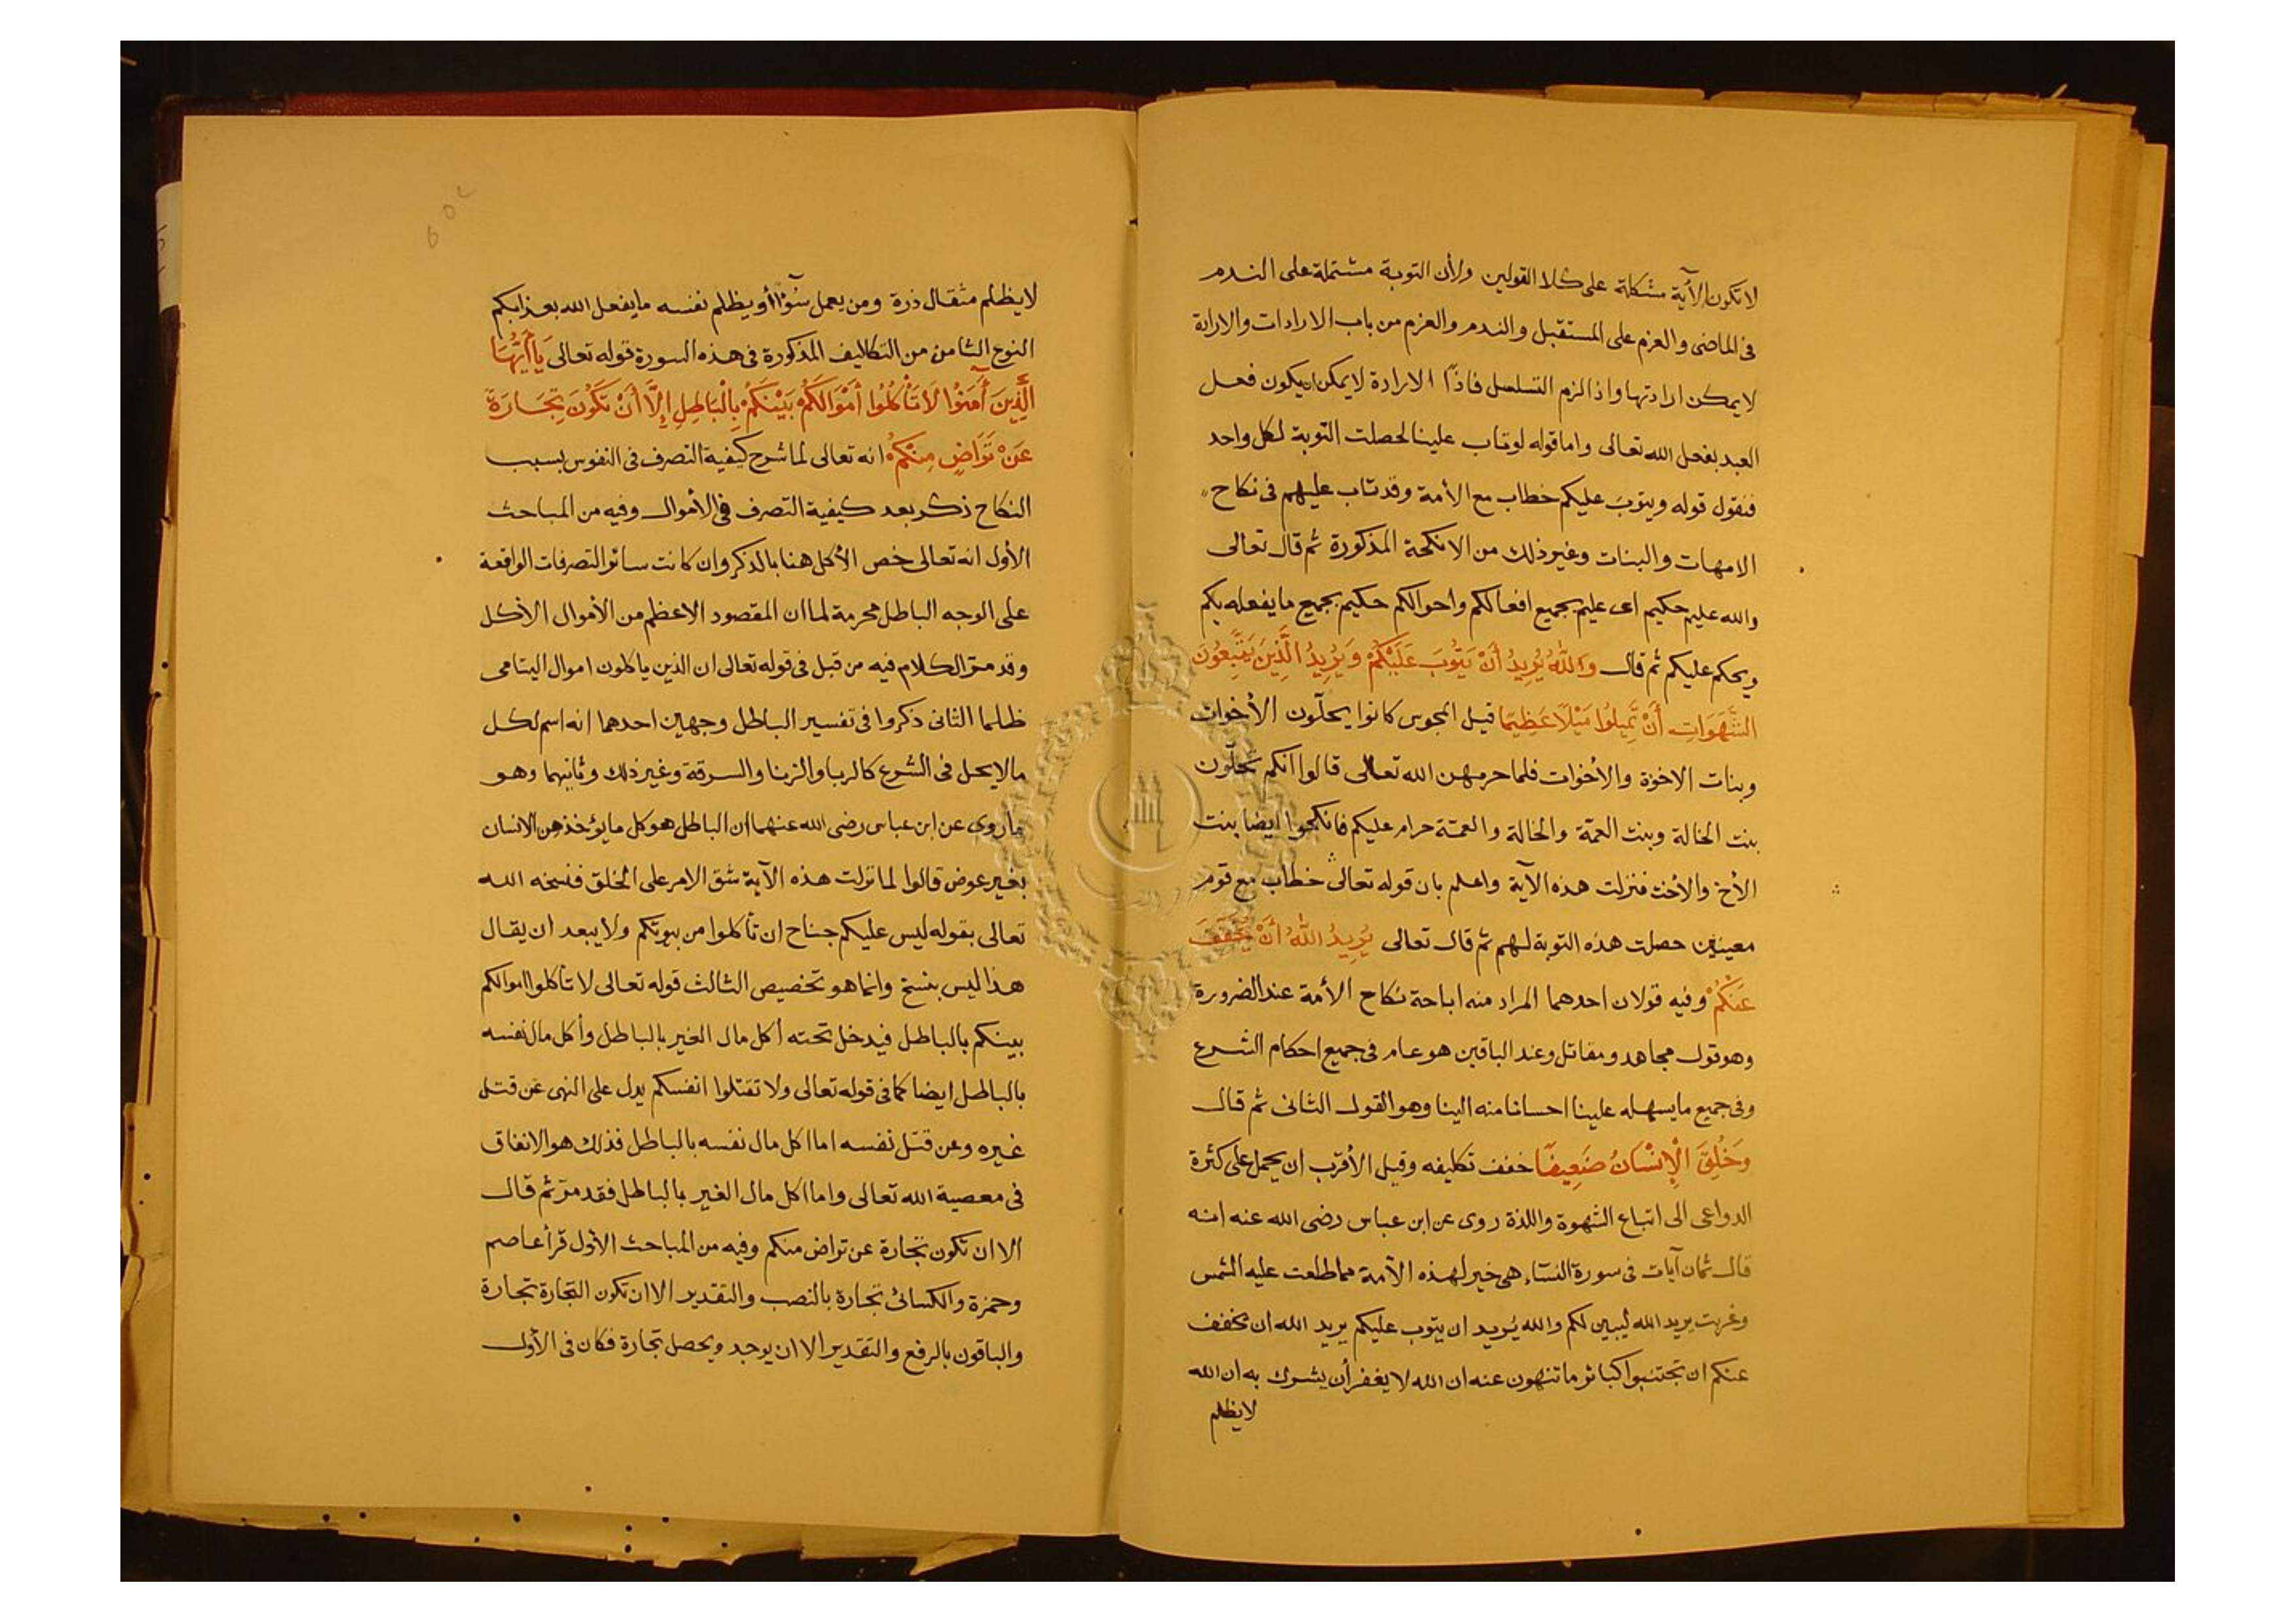 لا تكون الآية مشكلة على كلا القولين ولأن التوبة مشتملة على الندم
فى الماضى والعزم على المستقبل والندم والعزم من باب الارادات والارادة
لا يمكن ارادتها واذا لزم التسلسل فاذًا الارادة لا يمكن ان يكون فعل
العبد بفعل الله تعالى واما قوله لو تاب علينا لحصلت التوبة لكل واحد
فنقول قوله ويتوبَ عليكم خطاب مع الأمة وقد تاب عليهم فى نكاح
الامهات والبنات وغير ذلك من الانكحة المذكورة ثم قال تعالى
والله عليم حكيم اى عليم بجميع افعالكم واحوالكم حكيم بجميع ما يفعله بكم
ويحكم عليكم ثم قال وَاللَّهُ يُرِيدُ أَنْ يَتُوبَ عَلَيْكُمْ وَيُرِيدُ الَّذِينَ يَتَّبِعُونَ
الشَّهَوَاتِ أَنْ تَمِيلُوا مَيْلًا عَظِيمًا قيل المجوس كانوا يحلّون الأخوات
وبنات الاخوة والأخوات فلما حرمهن الله تعالى قالوا انكم تحلّون
بنت الخالة وبنت العمّة والخالة والعمّة حرام عليكم فانكحوا ايضا بنت
الأخ والأخت فنزلت هذه الآية واعلم بان قوله تعالى خطاب مع قوم
معينين حصلت هذه التوبة لهم ثم قال تعالى يُرِيدُ اللَّهُ أَنْ يُخَفِّفَ
عَنْكُمْ وفيه قولان احدهما المراد منه اباحة نكاح الأمة عند الضرورة
وهو قول مجاهد ومقاتل وعند الباقين هو عام فى جميع احكام الشرع
وفى جميع ما يسهله علينا احسانا منه الينا وهو القول الثانى ثم قال
وَخُلِقَ الْإِنْسَانُ ضَعِيفًا خفف تكليفه وقيل الأقرب ان يحمل على كثرة
الدواعى الى اتباع الشهوة واللذة روى عن ابن عباس رضى الله عنه انه
قال ثمان آيات فى سورة النساء هى خير لهذه الأمة مما طلعت عليه الشمس
وغربت يريد الله ليبين لكم والله يُريد ان يتوب عليكم يريد الله ان يخفف
عنكم ان تجتنبوا كبائر ما تنهون عنه ان الله لا يغفر أن يشرك به ان الله
لا يظلم
لا يظلم مثقال ذرة ومن يعمل سُوْأً أو يظلم نفسه ما يفعل الله بعذابكم
النوع الثامن من التكاليف المذكورة فى هذه السورة قوله تعالى يَا أَيُّهَا
الَّذِينَ آمَنُوا لَا تَأْكُلُوا أَمْوَالَكُمْ بَيْنَكُمْ بِالْبَاطِلِ إِلَّا أَنْ تَكُونَ تِجَارَةً
عَنْ تَرَاضٍ مِنْكُمْ انه تعالى لما شرح كيفية التصرف فى النفوس بسبب
النكاح ذكر بعد كيفية التصرف فى الأموال وفيه من المباحث
الأول انه تعالى خص الأكل هنا بالذكر وان كانت سائر التصرفات الواقعة
على الوجه الباطل محرمة لما ان المقصود الاعظم من الأموال الأكل
وقد مرّ الكلام فيه من قبل فى قوله تعالى ان الذين ياكلون اموال اليتامى
ظلما الثانى ذكروا فى تفسير الباطل وجهين احدهما انه اسم لكل
ما لا يحل فى الشرع كالربا والزنا والسرقة وغير ذلك وثانيهما وهو
ما روى عن ابن عباس رضى الله عنهما ان الباطل هو كل ما يؤخذ من الانسان
بغير عوض قالوا لما نزلت هذه الآية شق الامر على الخلق فنسخه الله
تعالى بقوله ليس عليكم جناح ان تأكلوا من بيوتكم ولا يبعد ان يقال
هذا ليس بنسخ وانما هو تخصيص الثالث قوله تعالى لا تأكلوا اموالكم
بينكم بالباطل فيدخل تحته أكل مال الغير بالباطل وأكل مال نفسه
بالباطل ايضا كما فى قوله تعالى ولا تقتلوا انفسكم يدل على النهى عن قتل
غيره وعن قتل نفسه اما اكل مال نفسه بالباطل فذلك هو الانفاق
فى معصية الله تعالى واما اكل مال الغير بالباطل فقد مرّ ثم قال
الا ان تكون تجارة عن تراض منكم وفيه من المباحث الأول قرأ عاصم
وحمزة والكسائى تجارة بالنصب والتقدير الا ان تكون التجارة تجارة
والباقون بالرفع والتقدير الا ان يوجد ويحصل تجارة فكان فى الأول